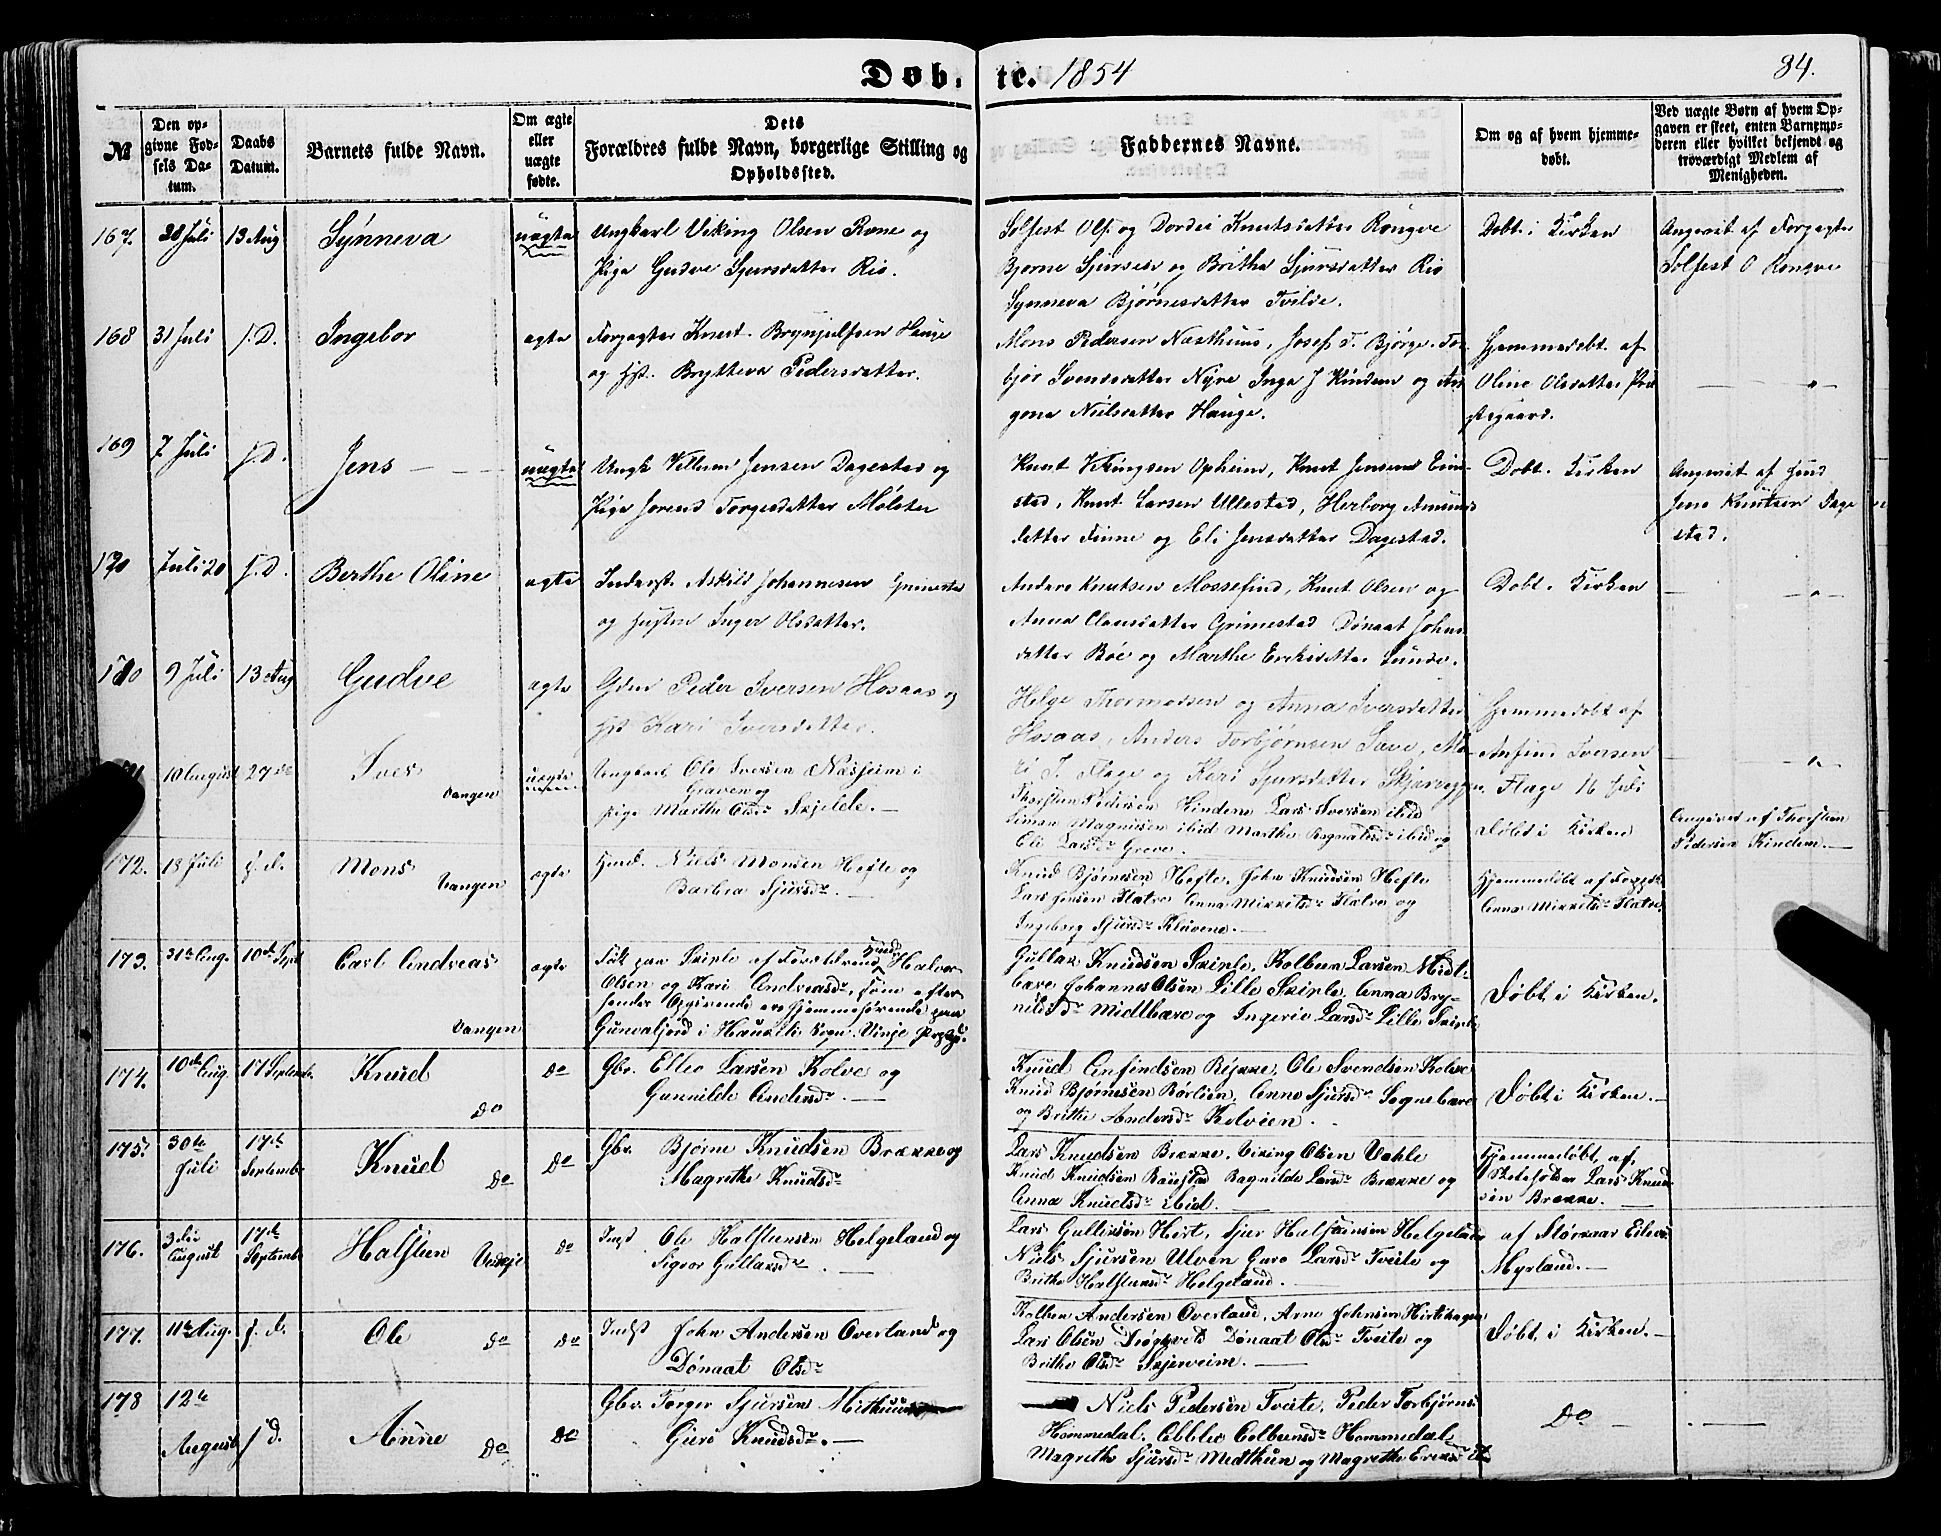 Døb, te. 1854
84.
№
Den opgivne Fødsels Datum.
Daabs Datum.
Barnets fulde Navn.
Om ægte eller uægte fødte.
Dets Forældres fulde Navn, borgerlige Stilling og Opholdssted.
Faddernes Navne.
Om og af hvem hjemmedøbt.
Ved uægte Børn af hvem Opgaven er skeet, enten Barnemoderen eller hvilket bekjendt og troværdigt Medlem af Menigheden.
167. Juli 13 Aug Synneva uægte Ungkarl Viking Olsen Rone og
Pige Gudve Sjursdatter Rio.
Solfest Ols. og Dordei Knutsdatter Rongve
Bjorne Sjursen og Britha Sjursdatter Rio
Synneva Bjørnesdatter Tvilde.
Døbt i Kirken
Angivet af Forpagter
Solfest O Rongve
168 31 Juli s. D. Ingebor ægte Forpagter Knut Brynjulfsen Hauge
og Hst. Brytteva Pedersdatter.
Mons Pedersen Næsthuus, Josef T. Bjørge. Tor-
bjør Svensdatter Nyre Inga J Kindem og An
gona Nielsdatter Hauge.
Hjemmedøbt af
Oline Olsdatter Præ
stegaard.
169 7 Juli s. D. Jens uægte Ungk Villum Jensen Dagestad og
Pige Torgersdatter Mølster
Knut Vikingsen Opheim, Knut Jensen
stad, Knut Larsen Ullestad, Herborg Amunds
datter Finne og Eli Jensdatter Dagestad.
Døbt i Kirken
Angivet af
Jens Knutsen Dage
stad.
170 Juli 20 s. D. Berthe Oline ægte Inderst Askild Johannesen Grimestad
og Hustru Inger Olsdatter.
Anders Knutsen Mossefind, Knut Olsen og
Anna Clausdatter Grimestad Dønaat Johns
datter Bøe og Marthe Eriksdatter Lunde.
Døbt i Kirken
9 Juli 13 Aug Gudve ægte Gdm Peder Iversen Hosaas og
Hst Kari Iversdatter.
Helge Thormodsen og Anna Iversdatter
Hosaas, Anders Torbjørnsen Sæve, Ma-
ri I. Flage og Kari Sjursdatter Skjervegjen
Hjemmedøbt af
Anfind Iversen
Flage 16 Juli
10 August 27de Iver Vangen uægte Ungkarl Ole Iversen Næsheim i
Graven og
pige Marthe Olsdr Skjelde.
Thorsten Pedersen Kindem Lars Iversen ibid
Simon Magnusen ibid Marthe Ragnaldsdr ibid og
Eli Larsdr Greve.
Døbt i Kirken
Angivet af Thorsten
Pedersen Kindem.
172. 18 Juli s. d. Mons Vangen ægte Niels Monsen Hefte og
Barbra Sjursdr.
Knud Bjørnesen Hefte, John Knudsen Hefte
Lars Jensen Flatre Anna Mikkelsdr Flatre og
Ingeborg Sjursdr Kluvene.
Hjemmedøbt af
Anna Mikkelsdr Flatre.
173. 31te Aug. 10de Sept Carl Andreas Vangen ægte Født paa Skiple af Forældrene Knud Halvor
Olsen og Kari Andreasdr, som efter
Opgivende ere Hjemmehørende paa
i Houkeli Sogn Vinje
Gullak Knudsen Skiple, Kolbein Larsen Midt-
bære Johannes Olsen Lille Skiple, Anna Bry-
nildsdr Midtbære og Ingerie Larsdr Lille Skiple
Døbt i Kirken.
174. 10de Aug. 17 Septembr. Knud Do Do Gbr. Ellev Larsen Kolve og
Gunnilde Andersdr.
Knud Anfindsen Rekve, Ole Svendsen Kolve
Knud Bjørnesen Rørlien, Anna Sjursdr Sognebære
og Brithe Andersdr Kolvien.
Døbt i Kirken.
175. 30te Juli 17de Septembr Knud Do Do Gbr. Bjørne Knudsen Brække og
Magrethe Knudsdr
Lars Knudsen Brække, Viking Olsen Vahle
Knud Knudsen Raustad Ragnilde Larsdr Brække og
Anna Knudsdr ibid.
Hjemmedøbt af
Skoleholder Lars Knud-
sen Brække.
176. 3die August 17de Septembr Halsten Vinje Do Inst Ole Halstensen Helgeland og
Sigvor Gullaksdr.
Lars Gulleksen Hirt, Sjur Halstensen Helgeland
Niels Sjursen Ulven Guro Larsdr Tveite og
Brithe Halstensdr Helgeland.
af Eilevs
Myrland.
177. 11te Aug. s. d. Ole Do Do Indst John Andersen Overland og
Dønaat Olsdr
Kolben Andersen Overland, Arne Johnsen Hirtshagen
Lars Olsen Dønaat Olsdr Tveite og
Brithe Olsdr Skjerveim.
Døbt i Kirken.
178 12te August s. d. Anne Do Do Gbr. Torger Sjursen Mithuun
Guro Knudsdr.
Niels Pedersen Tveite, Peder Torbjørns.
Hommedal, Ablev Colbensdr Hommedal
Magrethe Sjursdr Medthun og Magrethe Eriksdr
Do